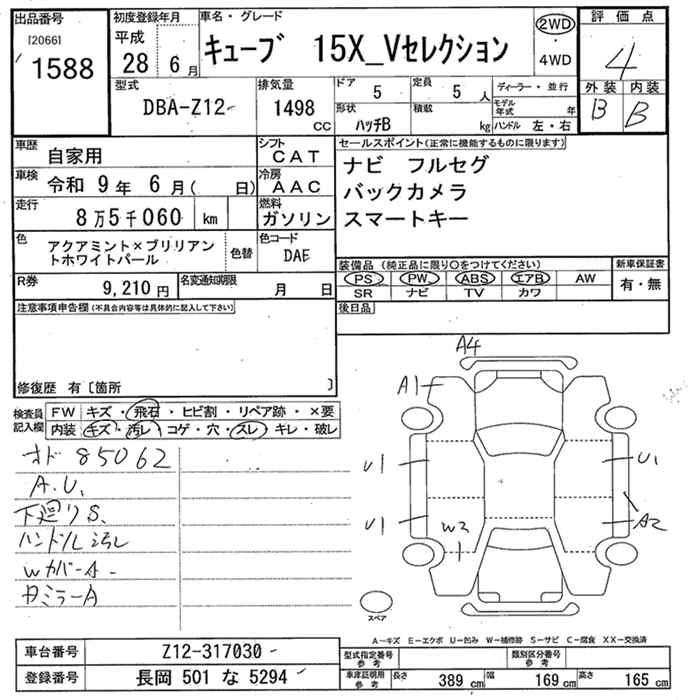 出品番号
[2066]
1588
初度登録年月
平成
28 年 6 月
車名・グレード
キューブ 15X_Vセレクション
2WD
・
4WD
評価点
4
外装 内装
B B
型式
DBA-Z12
排気量
1498
cc
ドア 5
定員 5 人
形状 ハッチB
積載 kg
ディーラー・並行
モデル年式 年
ハンドル 左・右
車歴 自家用
シフト CAT
車検 令和 9 年 6 月 ( 日)
冷房 AAC
走行 8万5千060 km
燃料 ガソリン
色 アクアミント×ブリリアントホワイトパール
色替
色コード DAE
R券 9,210 円
名変通知期限 月 日
セールスポイント(正常に機能するものに限ります)
ナビ フルセグ
バックカメラ
スマートキー
装備品 (純正品に限り○をつけてください)
PS PW ABS エアB AW
SR ナビ TV カワ
新車保証書
有・無
後日品
注意事項申告欄(不具合内容等は具体的に記入して下さい)
修復歴 有 [箇所 ]
検査員記入欄
FW キズ・飛石・ヒビ割・リペア跡・×要
内装 キズ・汚レ・コゲ・穴・スレ・キレ・破レ
オド 85062
A.U,
下廻りS.
ハンドル汚レ
Wカバー A-
ミラーA
A4
A1
U1
U1
U1
A2
W2
1
スペア
A−キズ E−エクボ U−凹み W−補修跡 S−サビ C−腐食 XX−交換済
車台番号 Z12-317030
登録番号 長岡 501 な 5294
型式指定番号 参考
類別区分番号 参考
車庫証明用 参考
長さ 389 cm
幅 169 cm
高さ 165 cm